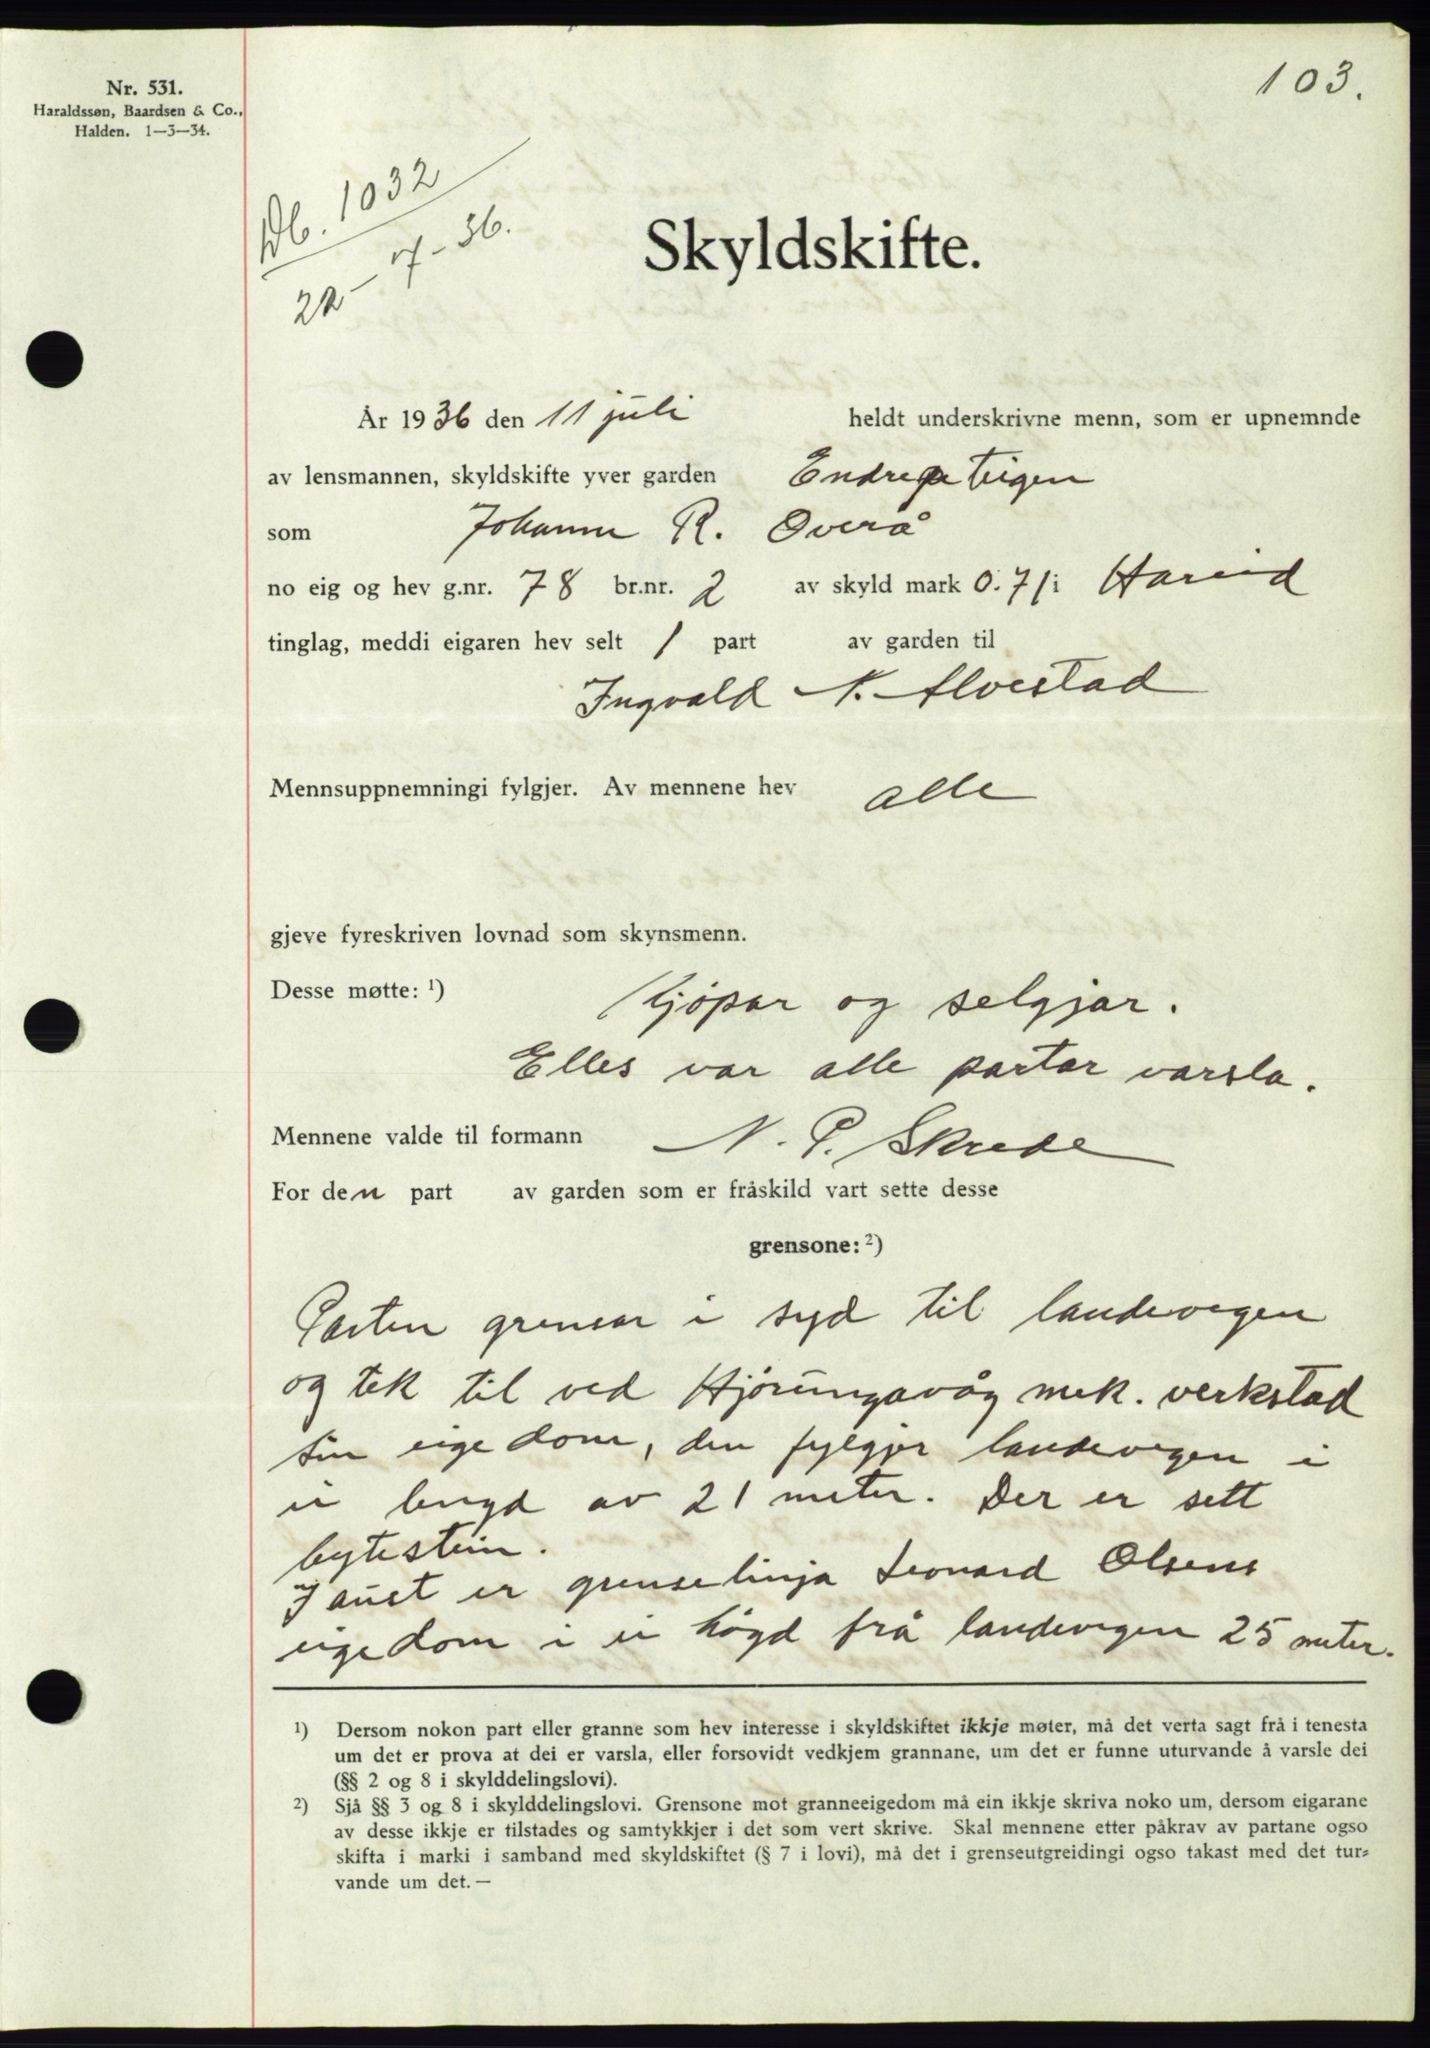 103.
Nr. 531.
Haraldssøn, Baardsen & Co.,
Halden. 1—3—34.
Db. 1032
22 - 7 - 36.
Skyldskifte.
År 1936 den 11 juli heldt underskrivne menn, som er upnemnde
av lensmannen, skyldskifte yver garden Endreteigen
som Johann R. Overå
no eig og hev g.nr. 78 br.nr. 2 av skyld mark 0.71 i Hareid
tinglag, meddi eigaren hev selt 1 part av garden til
Ingvald N. Alvestad
Mennsuppnemningi fylgjer. Av mennene hev alle
gjeve fyreskriven lovnad som skynsmenn.
Desse møtte: ¹) Kjöpar og selgjar.
Elles var alle partar varsla.
Mennene valde til formann N. P. Skrede
For den part av garden som er fråskild vart sette desse
grensone: ²)
Parten grensar i syd til landevegen
og tek til ved Hjörungavåg mek. verkstad
sin eigedom, den fylgjer landevegen i
ei lengd av 21 meter. Der er sett
bytestein.
I aust er grenselinja Leonard Olsens
eigedom i ei högd frå landevegen 25 meter.
¹) Dersom nokon part eller granne som hev interesse i skyldskiftet ikkje møter, må det verta sagt frå i tenesta
um det er prova at dei er varsla, eller forsovidt vedkjem grannane, um det er funne uturvande å varsle dei
(§§ 2 og 8 i skylddelingslovi).
²) Sjå §§ 3 og 8 i skylddelingslovi. Grensone mot granneeigedom må ein ikkje skriva noko um, dersom eigarane
av desse ikkje er tilstades og samtykkjer i det som vert skrive. Skal mennene etter påkrav av partane ogso
skifta i marki i samband med skyldskiftet (§ 7 i lovi), må det i grenseutgreidingi ogso takast med det tur-
vande um det. —